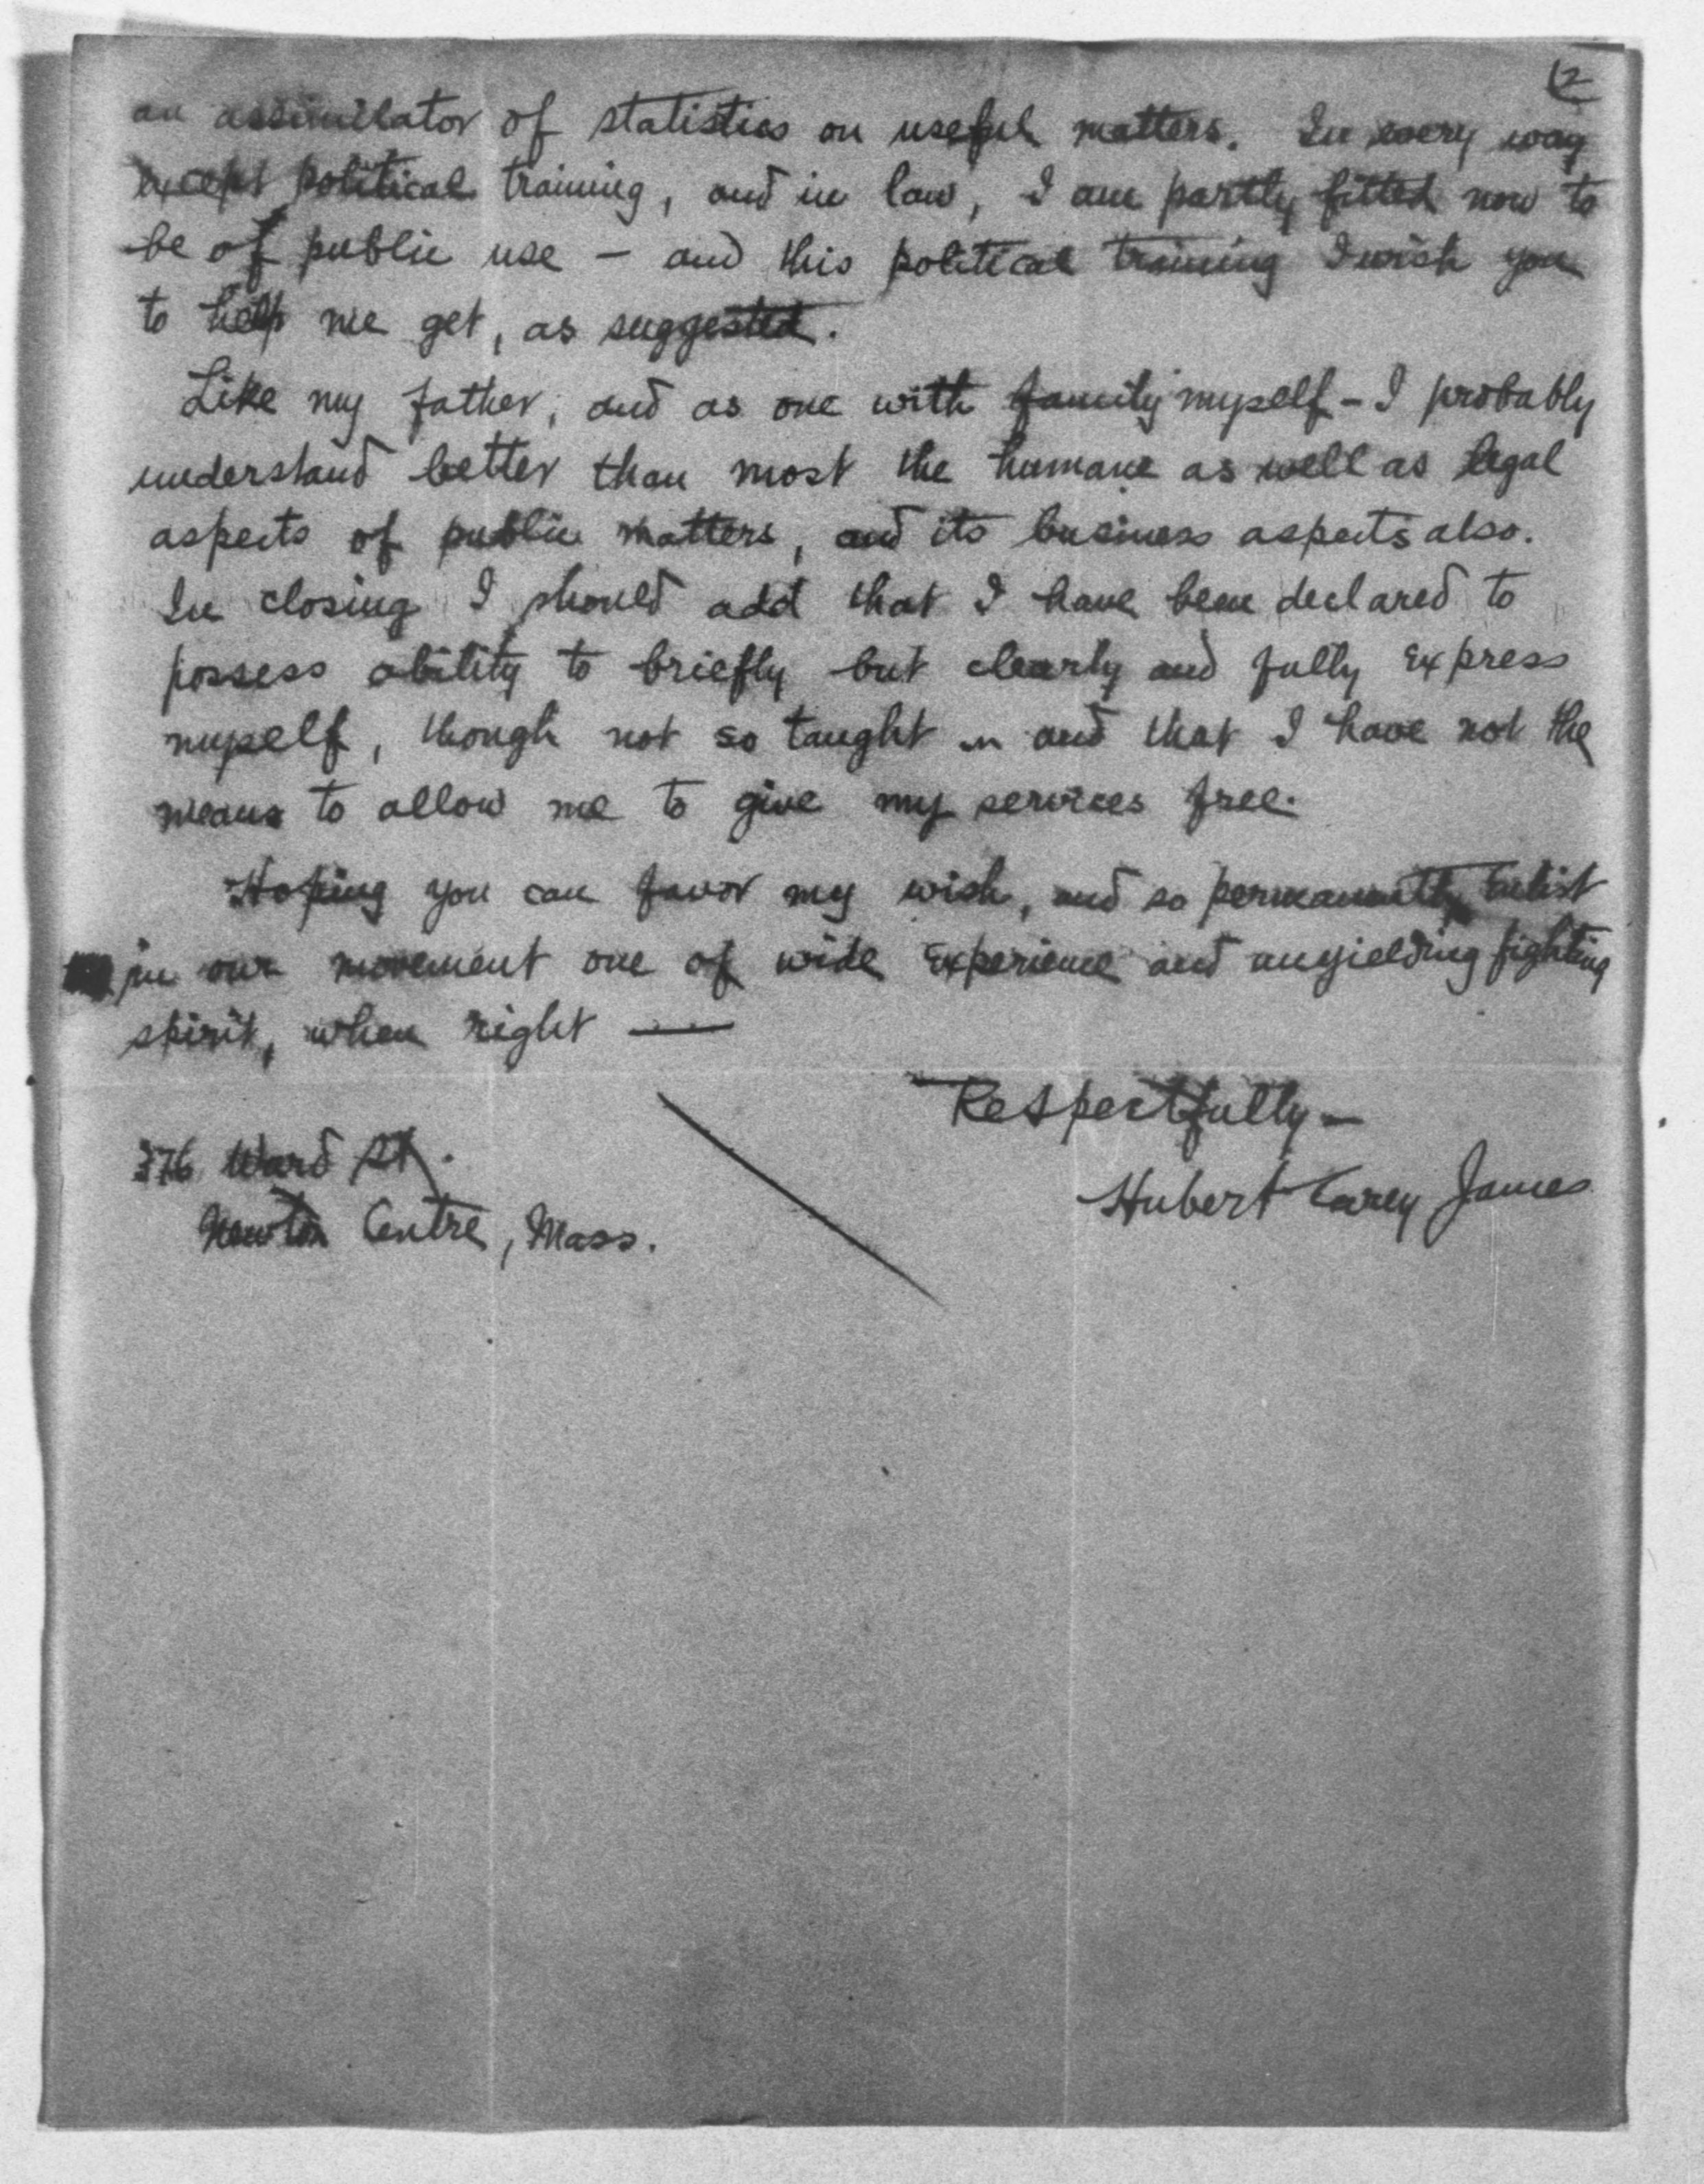 12
an assimilator of statistics on useful matters. In every way
except political training, and in law, I am partly fitted now to
be of public use — and this political training I wish you
to help me get, as suggested.
Like my father, and as one with family myself - I probably
understand better than most the humane as well as legal
aspects of public matters, and its business aspects also.
In closing I should add that I have been declared to
possess ability to briefly but clearly and fully express
myself, though not so taught — and that I have not the
means to allow me to give my services free.
Hoping you can favor my wish, and so permanently enlist
in our movement one of wide experience and unyielding fighting
spirit, when right —
Respectfully —
Hubert Carey James
376 Ward St.
Newton Centre, Mass.